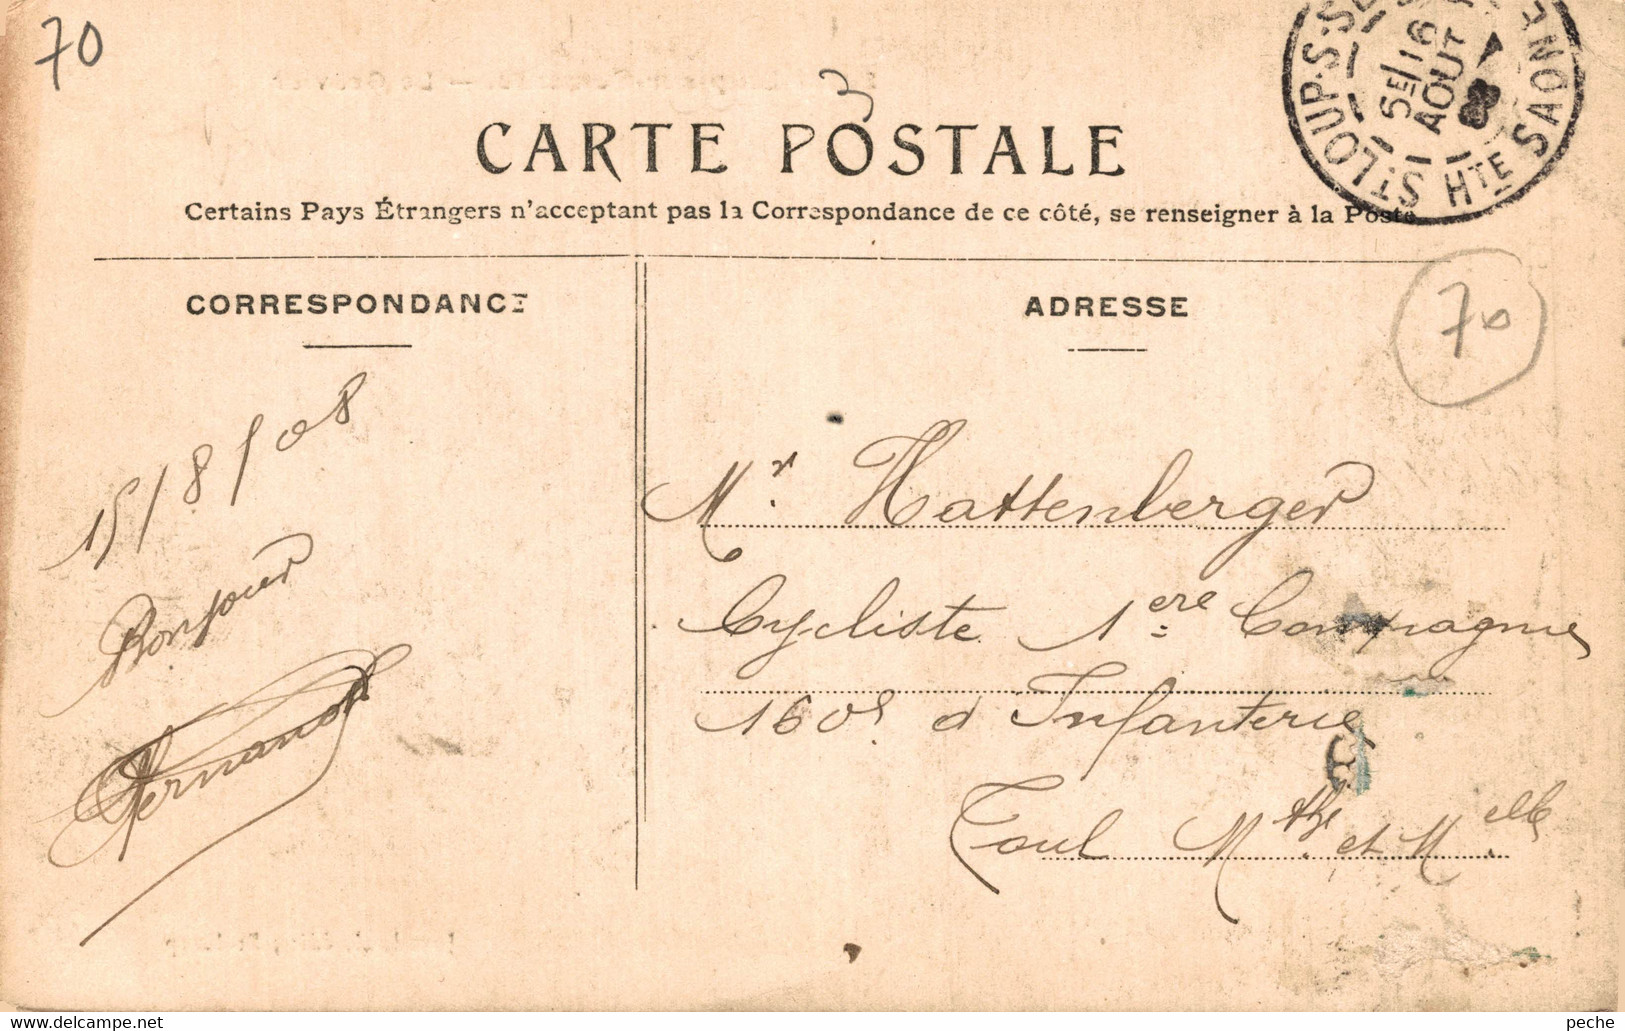 70
CARTE POSTALE
Certains Pays Étrangers n'acceptant pas la Correspondance de ce côté, se renseigner à la Poste
ST LOUP-S-SE
HTE SAONE
5E/16
AOUT
08
CORRESPONDANCE
ADRESSE
70
15/8/08
Bonjour
Fernand
Mr. Hattenberger
Cycliste 1ere Compagnie
160e d Infanterie
Toul Mthe et Melle
peche
delcampe.net